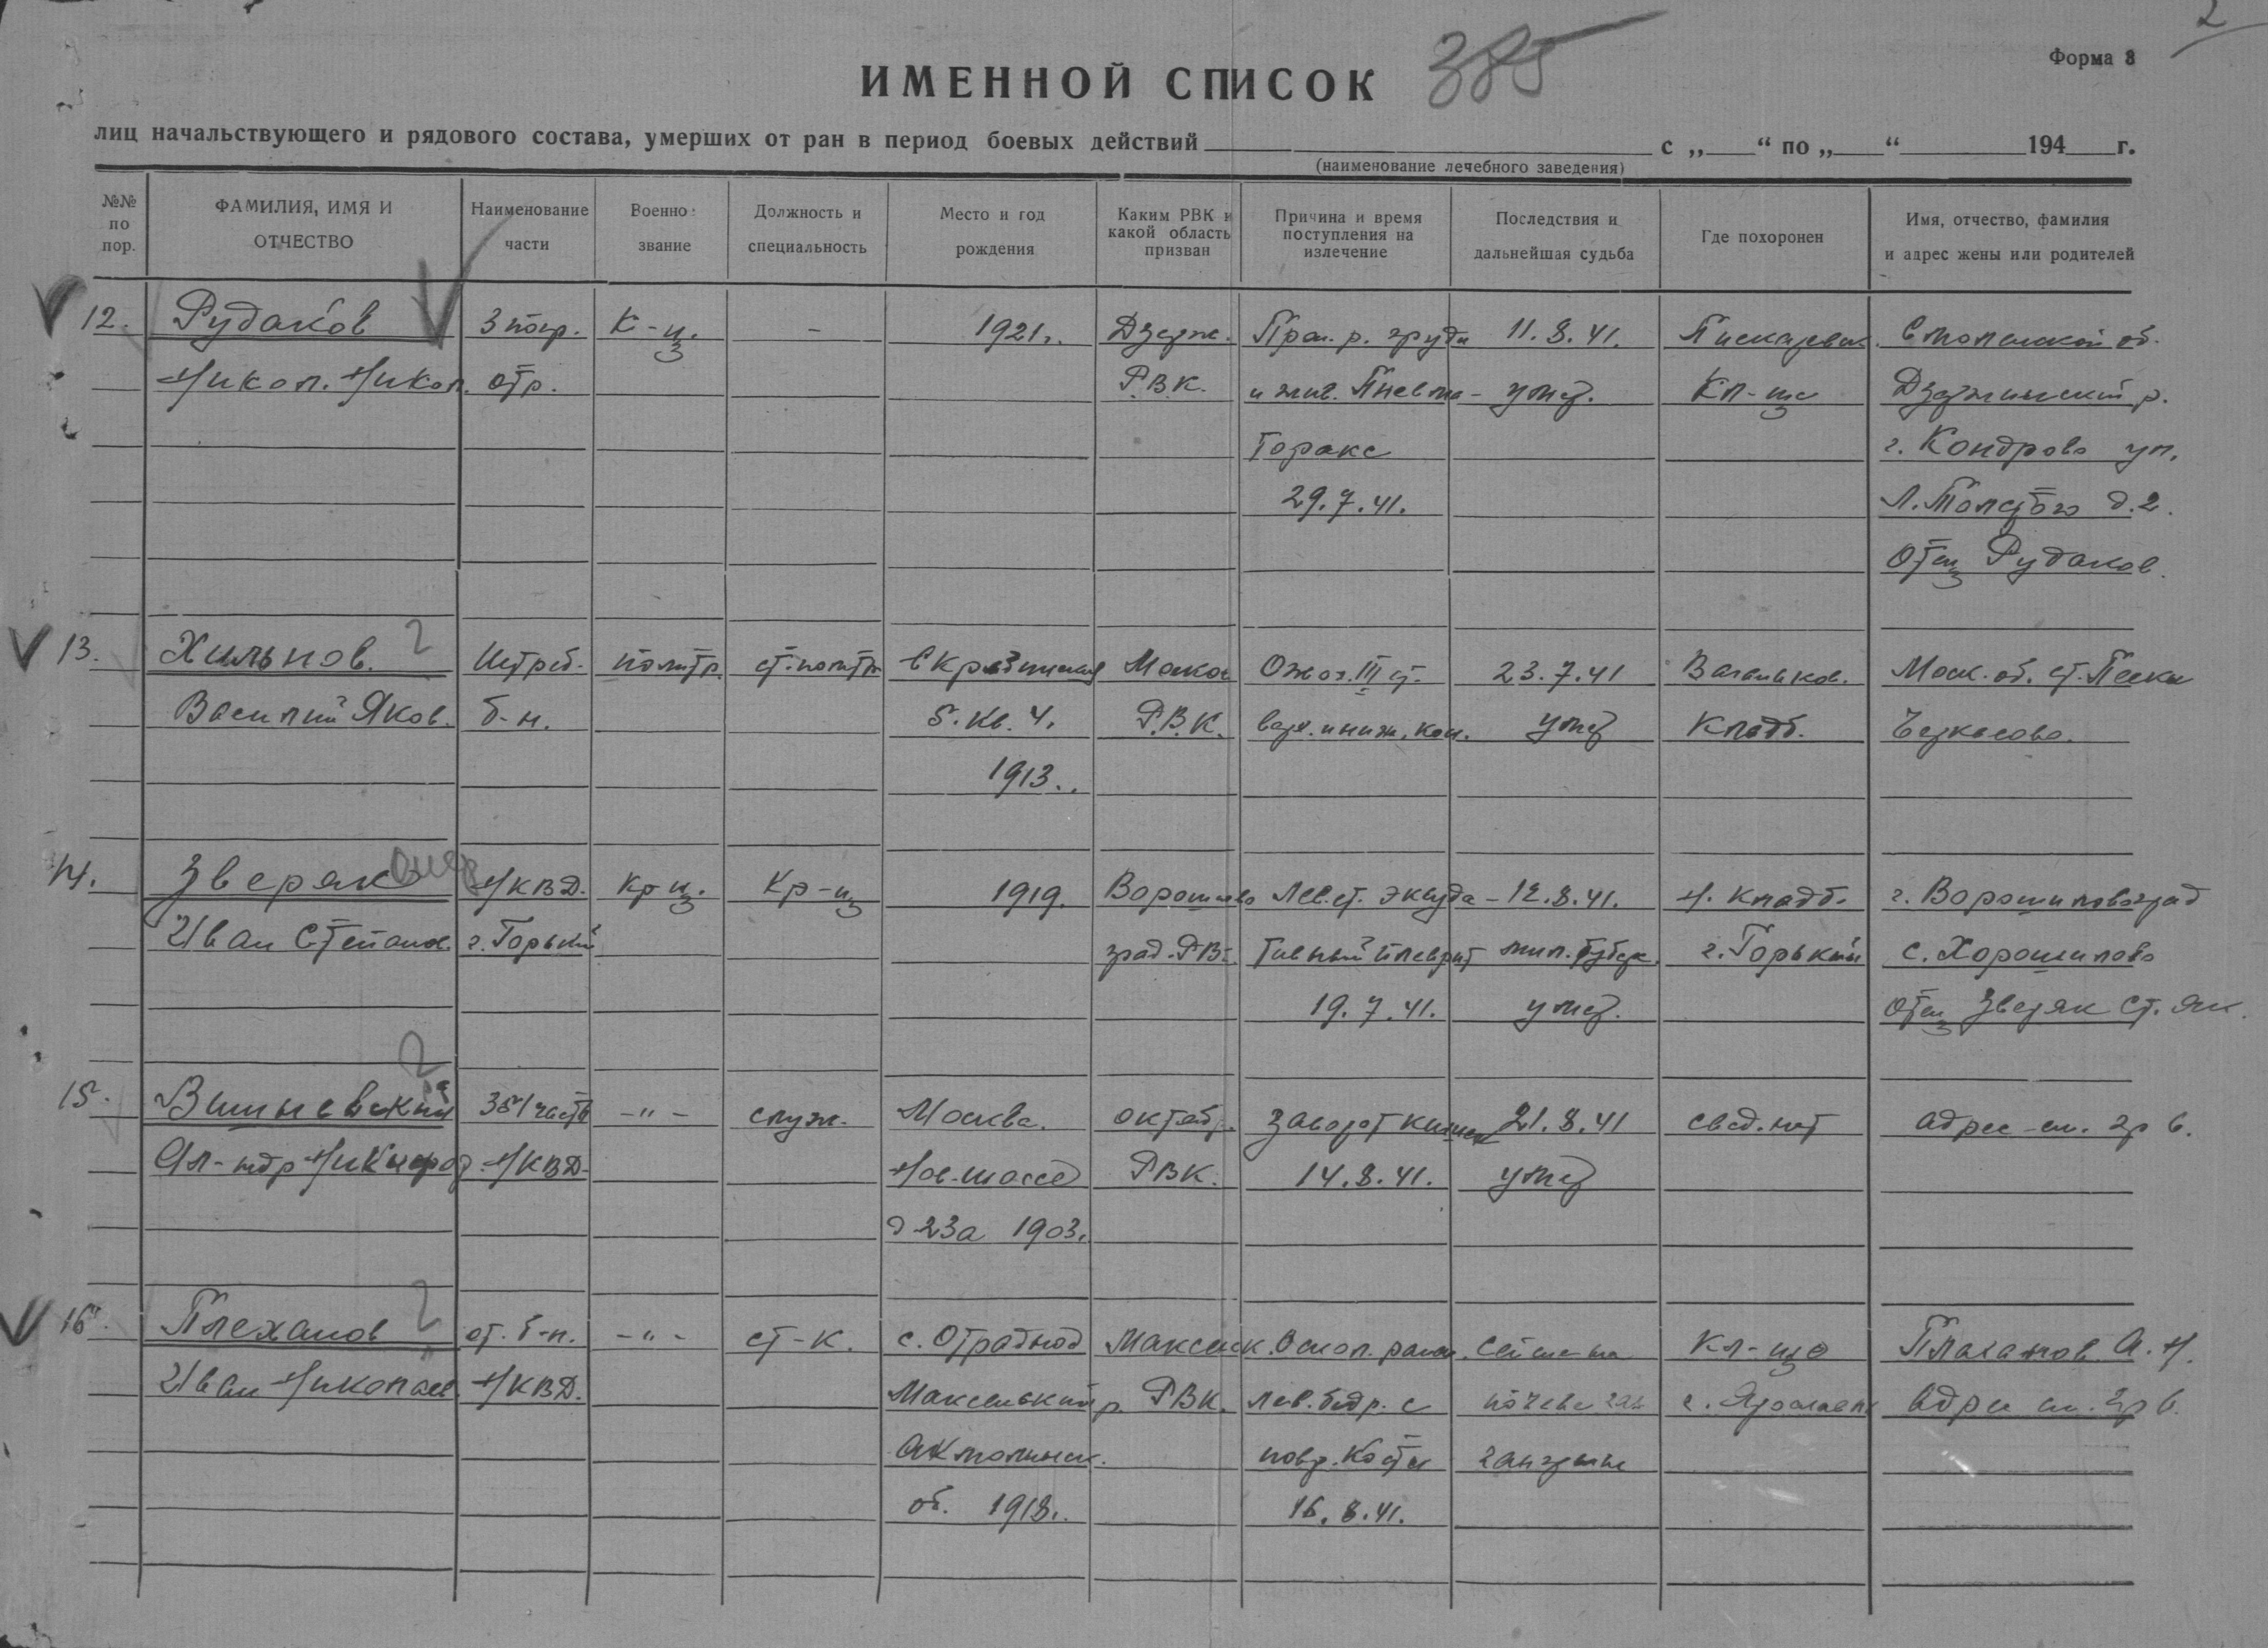 2
Форма 8
ИМЕННОЙ СПИСОК 385
лиц начальствующего и рядового состава, умерших от ран в период боевых действий с „ “ по „ “ 194 г.
(наименование лечебного заведения)
№№ по пор.
ФАМИЛИЯ, ИМЯ И ОТЧЕСТВО
Наименование части
Военное звание
Должность и специальность
Место и год рождения
Каким РВК и какой область призван
Причина и время поступления на излечение
Последствия и дальнейшая судьба
Где похоронен
Имя, отчество, фамилия и адрес жены или родителей
12. Рудаков 3 погр. К-ц. - 1921г. Дзерж. р. груди 11.8.41. Смоленской об.
Никол. Никол. отр. Р.В.К. и жив. Пневмо- умер. Кл-ще Дзержинский р.
Торакс г. Кондрово ул.
29.7.41. Л. Толстого д.2.
Отец Рудаков.
13. Хильнов. Истреб. политр. ст. политр. Москов Ожог. III ст. 23.7.41 Ваганьков. Моск. об. ст. Пески
Василий Яков. б-н. 5. кв. 4. Р.В.К. верх. и ниж. кон. умер Кладб. Черкасово.
1913..
14. Зверяк НКВД. Кр-ц. Кр-ц 1919. Ворошилово Лев. ст. эксуда- 12.8.41. Н. кладб. г. Ворошиловоград
Иван Степан. г. Горький град. РВК. тивный плеврит мил. туберк. г. Горький с. Хорошилово
19.7.41. умер. Отец Зверяк Ст. Як.
15. Вишневский часть -"- служ. Москва. октябр. Заворот кишек 21.8.41 свед. нет адрес см. гр 6.
Ал-ндр Никифор НКВД Нов. шоссе РВК. 14.8.41. умер
д 23а 1903.
16. Плеханов от. б-н. -"- ст-к. с. Отрадное Максимк. Оскол. ран. Кл-ще Плаханов. А. Н.
Иван Николаев. НКВД. р. РВК. лев. бедр. с г. Ярославль Адрес см. гр 6.
Акмолинск. повр. кости гангрены
об. 1918. 16.8.41.